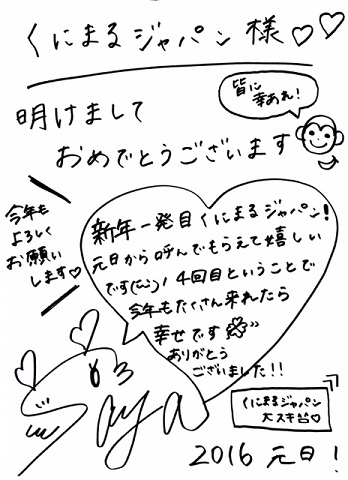 くにまるジャパン様♡♡
皆に
幸あれ!
明けまして
おめでとうございます
今年も
よろしく
お願い
します♡
新年一発目くにまるジャパン!
元日から呼んでもらえて嬉しい
です(^^)/ 4回目ということで
今年もたくさん来れたら
幸せです
ありがとう
ございました!!
Saya
くにまるジャパン
大スキ♡
2016 元日!